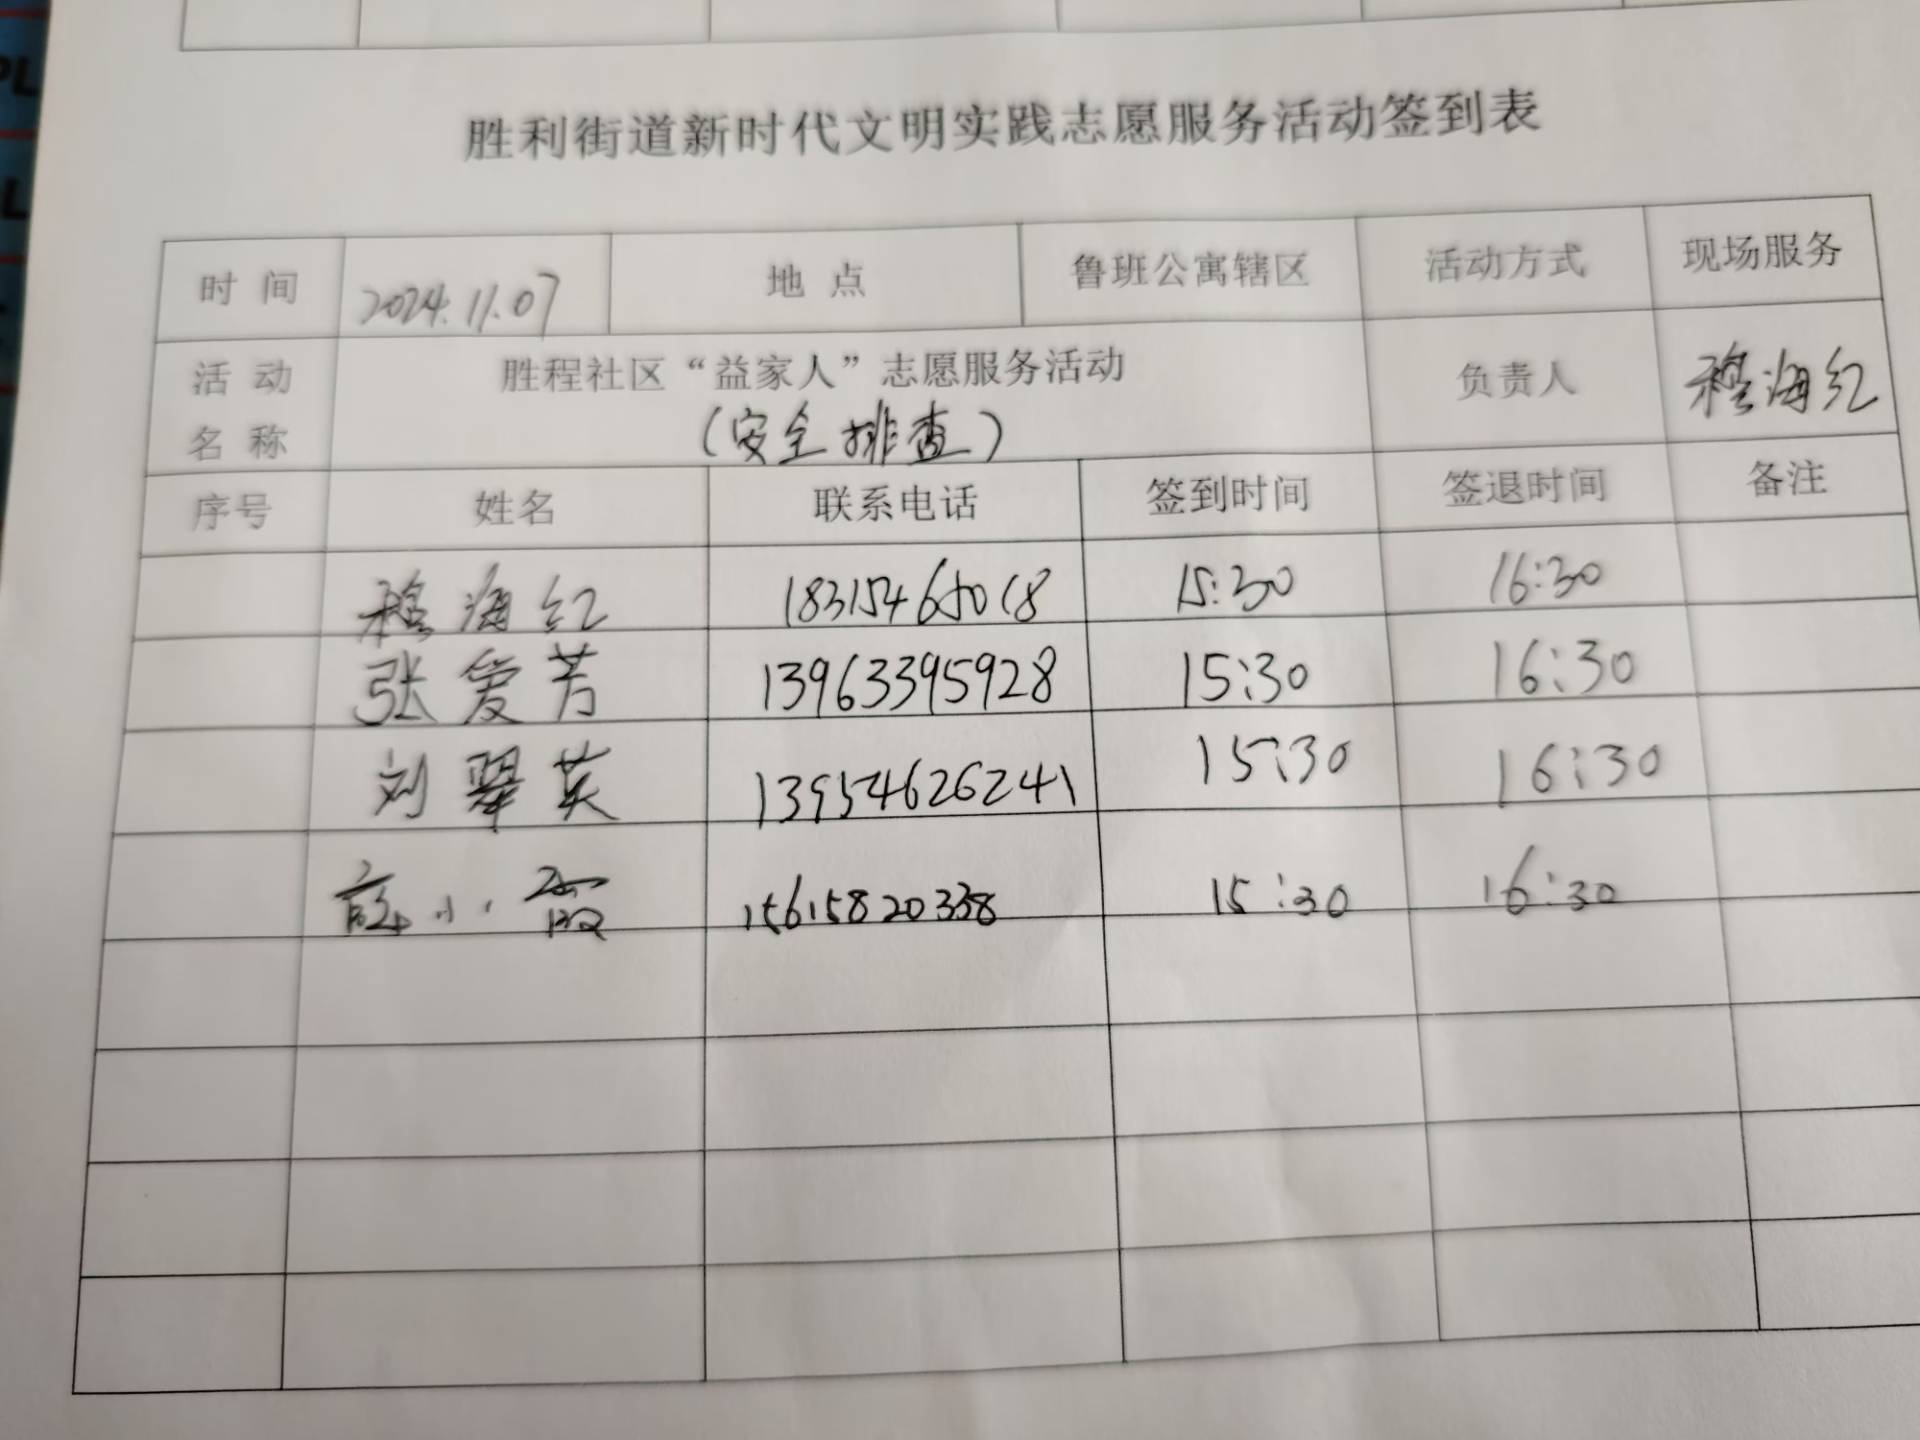 胜利街道新时代文明实践志愿服务活动签到表
时 间 2024.11.07 地 点 鲁班公寓辖区 活动方式 现场服务
活 动 名 称 胜程社区“益家人”志愿服务活动 负责人 穆海红
(安全排查)
序号 姓名 联系电话 签到时间 签退时间 备注
穆海红 18315465018 15:30 16:30
张爱芳 13963395928 15:30 16:30
刘翠英 13954626241 15:30 16:30
薛小霞 15615820338 15:30 16:30